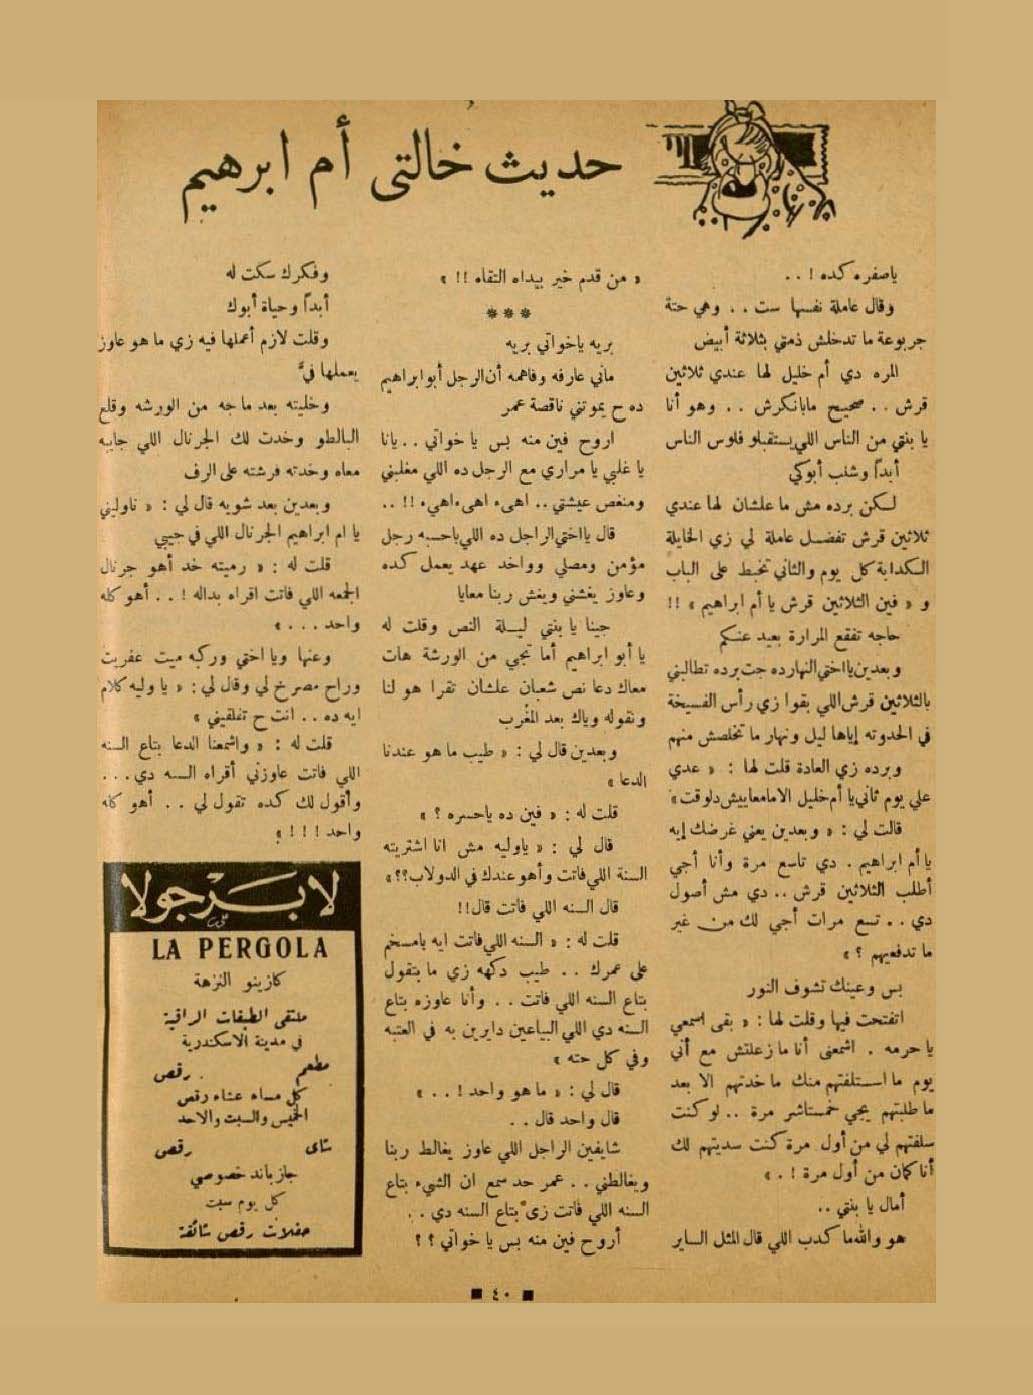 حديث خالتي أم ابرهيم
ياصفره كده ! . .
وقال عاملة نفسها ست . . وهي حتة
جربوعة ما تدخلش ذمتي بثلاثة أبيض
المره دي أم خليل لها عندي ثلاثين
قرش . . صحيح مابانكرش . . وهو أنا
يا بنتي من الناس اللي يستقبلو فلوس الناس
أبداً وشنب أبوكي
لكن برده مش ما علشان لها عندي
ثلاثين قرش تفضل عاملة لي زي الخايلة
الكدابة كل يوم والثاني تخبط على الباب
و « فين الثلاثين قرش يا أم ابراهيم » !!
حاجه تفقع المرارة بعيد عنكم
وبعدين يا اختي النهارده جت برده تطالبني
بالثلاثين قرش اللي بقوا زي رأس الفسيخة
في الحدوته إياها ليل ونهار ما تخلصش منهم
وبرده زي العادة قلت لها : « عدي
علي يوم ثاني يا أم خليل الا مامعاييش دلوقت »
قالت لي : « وبعدين يعني غرضك إيه
يا أم ابراهيم . دي تاسع مرة وأنا أجي
أطلب الثلاثين قرش . . دي مش أصول
دي . . تسع مرات أجي لك من غير
ما تدفعيهم ؟ »
بس وعينك تشوف النور
اتفتحت فيها وقلت لها : « بقى اسمعي
يا حرمه . اشمعنى أنا ما زعلتش مع أني
يوم ما استلفتهم منك ما خدتهم الا بعد
ما طلبتهم ييجي خمستاشر مرة . . لو كنت
سلفتهم لي من أول مرة كنت سديتهم لك
أنا كمان من أول مرة ! . »
أمال يا بنتي . .
هو والله ما كدب اللي قال المثل الساير
« من قدم خير بيداه التقاه !! »
* * *
بريه ياخواتي بريه
ماني عارفه وفاهمه أن الرجل أبو ابراهيم
ده ح يموتني ناقصة عمر
اروح فين منه بس يا خواتي . . يانا
يا غلبي يا مراري مع الرجل ده اللي مغلبني
ومنغص عيشتي . . اهىء اهىء اهىء !! . .
قال يا اختي الراجل ده اللي باحسبه رجل
مؤمن ومصلي وواخد عهد يعمل كده
وعاوز يغشني ويغش ربنا معايا
جينا يا بنتي ليلة النص وقلت له
يا أبو ابراهيم أما تجي من الورشة هات
معاك دعا نص شعبان علشان تقرا هو لنا
ونقوله وياك بعد المغرب
وبعدين قال لي : « طيب ما هو عندنا
الدعا »
قلت له : « فين ده ياحسره ؟ »
قال لي : « ياوليه مش انا اشتريته
السنة اللي فاتت وأهو عندك في الدولاب؟؟»
قال السنه اللي فاتت قال!!
قلت له : « السنه اللي فاتت ايه يامسخم
على عمرك . . طيب دكهه زي ما بتقول
بتاع السنه اللي فاتت . . وأنا عاوزه بتاع
السنه دي اللي البياعين دايرين به في العتبه
وفي كل حته »
قال لي : « ما هو واحد ! . . »
قال واحد قال . .
شايفين الراجل اللي عاوز يغالط ربنا
ويغالطني . . عمر حد سمع ان الشيء بتاع
السنه اللي فاتت زي بتاع السنه دي . .
أروح فين منه بس يا خواتي ؟ ؟
وفكرك سكت له
أبداً وحياة أبوك
وقلت لازم أعملها فيه زي ما هو عاوز
يعملها فيَّ
وخليته بعد ماجه من الورشه وقلع
البالطو وخدت لك الجرنال اللي جايبه
معاه وخدته فرشته على الرف
وبعدين بعد شويه قال لي : « ناوليني
يا ام ابراهيم الجرنال اللي في جيبي
قلت له : « رميته خد أهو جرنال
الجمعه اللي فاتت اقراه بداله ! . . أهو كله
واحد . . . »
وعنها ويا اختي وركبه ميت عفريت
وراح مصرخ لي وقال لي : « يا وليه كلام
ايه ده . . انت ح تفلقيني »
قلت له : « واشمعنا الدعا بتاع السنه
اللي فاتت عاوزني أقراه السنه دي . . .
وأقول لك كده تقول لي . . أهو كله
واحد ! ! ! »
لا برجولا
LA PERGOLA
كازينو النزهة
ملتقى الطبقات الراقية
في مدينة الاسكندرية
مطعم . رقص
كل مساء عشاء رقص
الخميس والسبت والاحد
شاى رقص
جازباند خصوصي
كل يوم سبت
حفلات رقص شائقة
■ ٤٠ ■